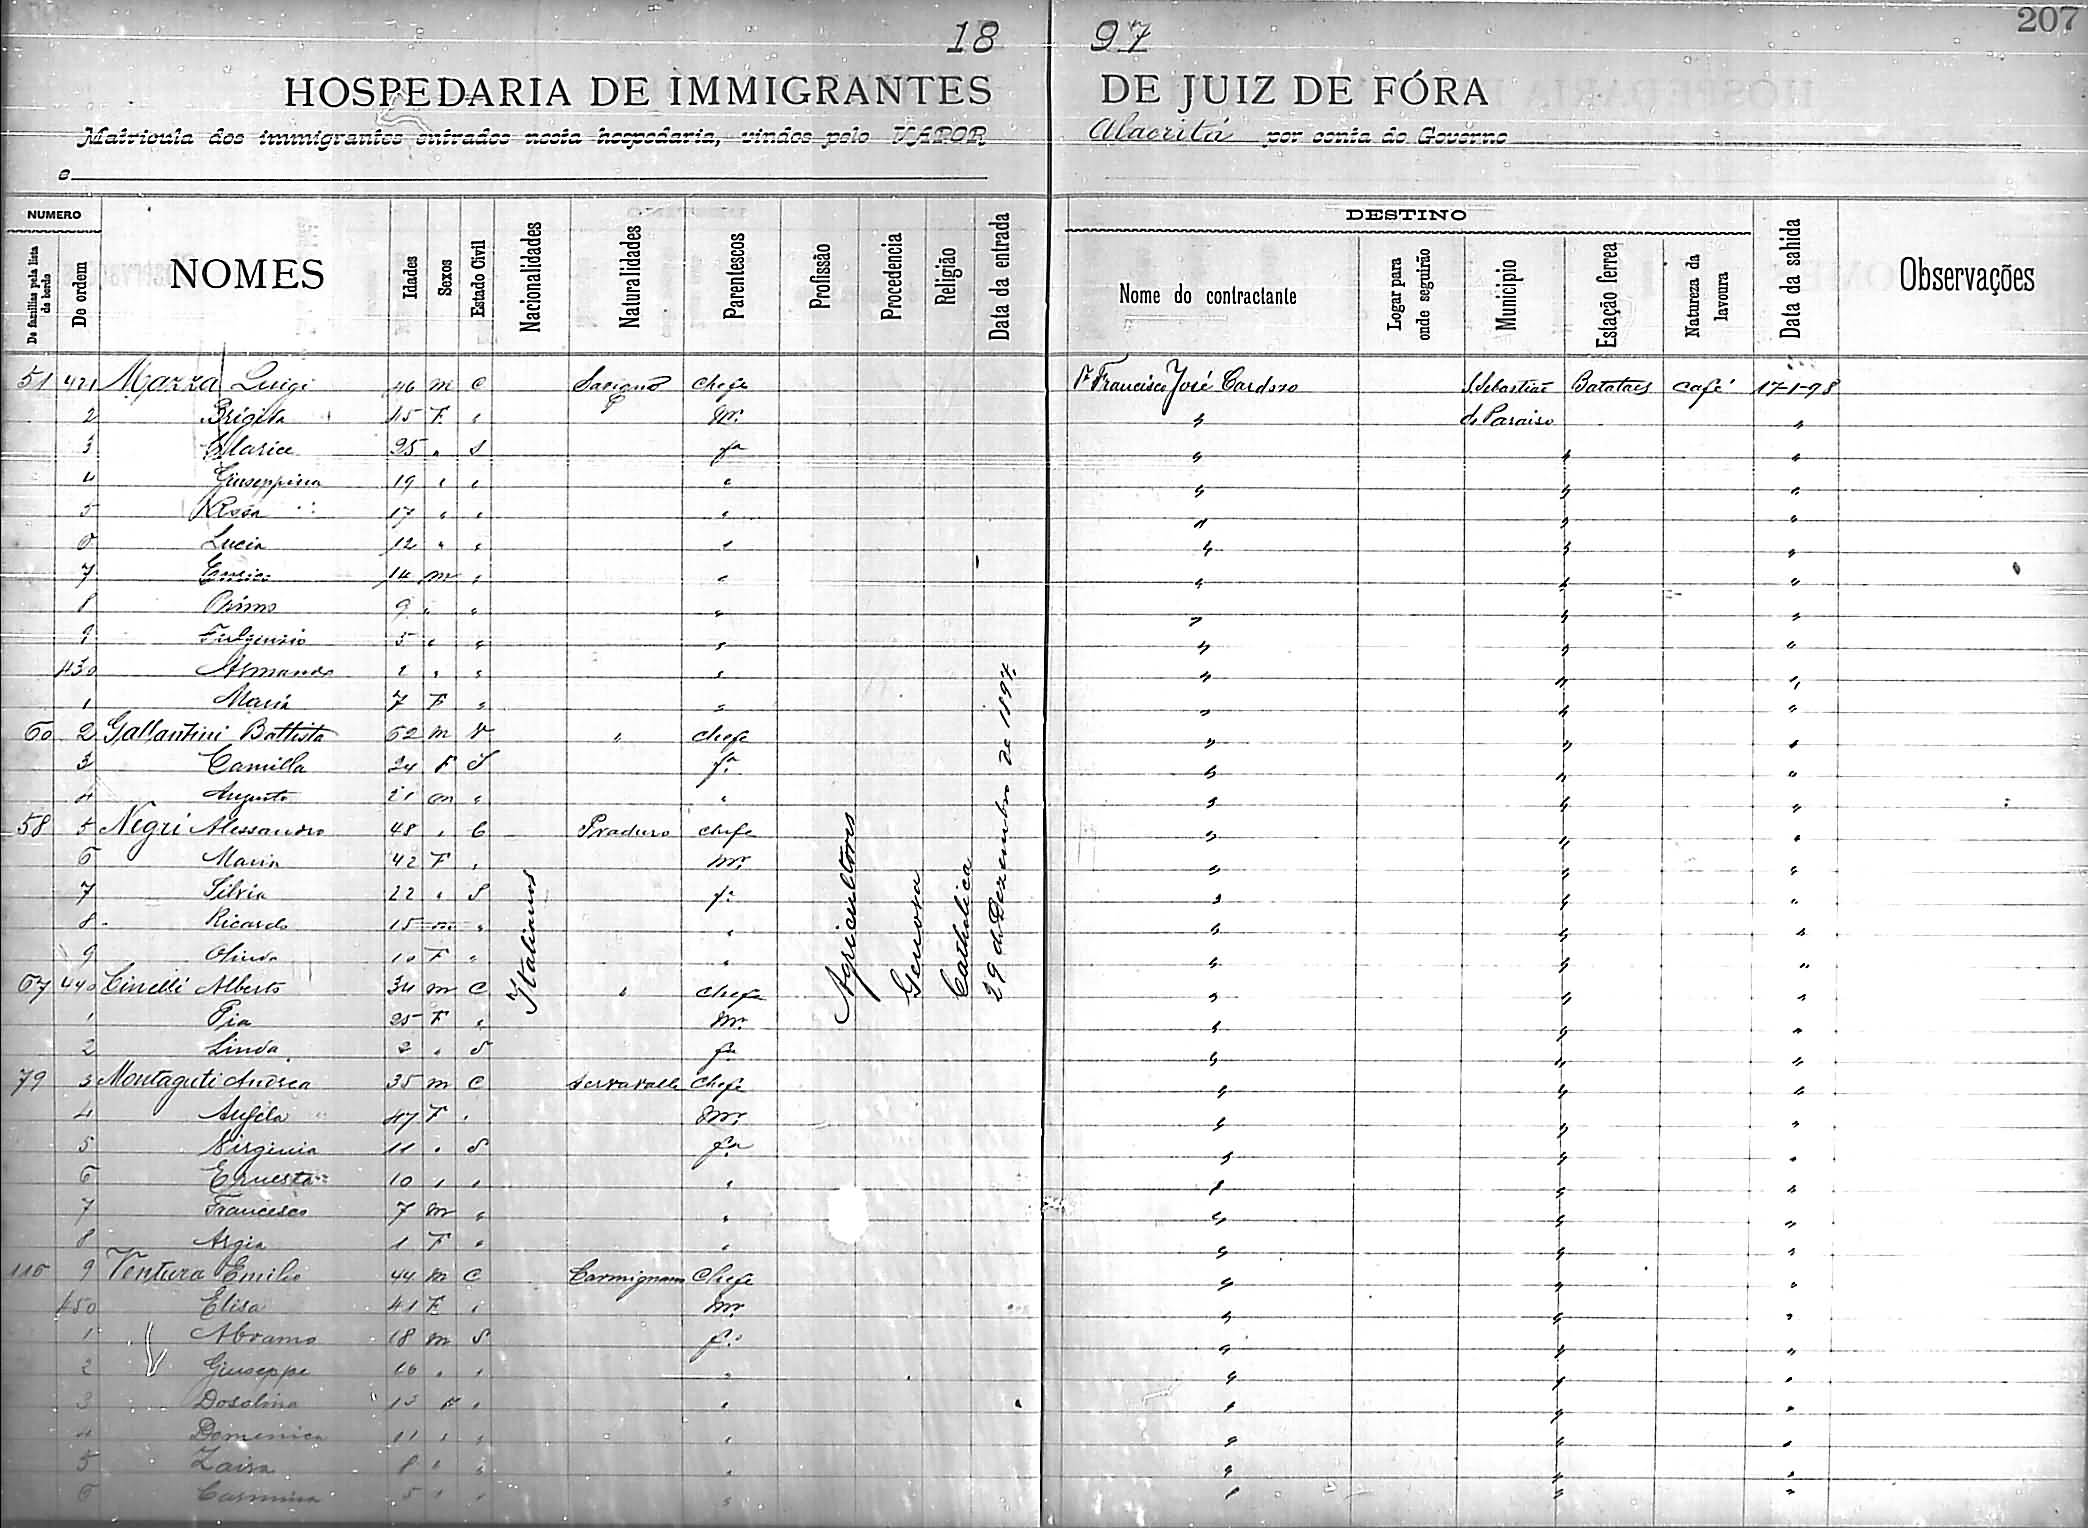 207
18 97
HOSPEDARIA DE IMMIGRANTES DE JUIZ DE FÓRA
Matricula dos immigrantes entrados nesta hospedaria, vindos pelo VAPOR Alacritá por conta do Governo
e
NUMERO DESTINO
De familias pela lista de bordo De ordem NOMES Idades Sexos Estado Civil Nacionalidades Naturalidades Parentescos Profissão Procedencia Religião Data da entrada Nome do contractante Logar para onde seguirão Municipio Estação ferrea Natureza da lavoura Data da sahida Observações
51 421 Mazza Luigi 46 m C Chefe Dr Francisco José Cardozo S. Sebastião Batataes café 17-1-98
2 Brigita 45 F " Mr. " do Paraiso "
3 Clarice 25 " S fa " " "
4 Giuseppina 19 " " " " " "
5 Rosa 17 " " " " " "
6 Lucia 12 " " " " " "
7 14 m " " " " "
8 Primo 9 " " " " " "
9 Fulgenzio 5 " " " " " "
430 Armando " " " " " "
1 Maria 7 F " " " " "
60 2 Gallantini Battista 62 m V " Chefe " " "
3 Camilla 24 F S fa " " "
4 Augusto 21 m " " " " "
58 5 Negri Alessandro 48 " C Praduro Chefe " " "
6 Maria 42 F " Mr. " " "
7 Silvia 22 " S fa " " "
8 Ricardo 15 m " " " " "
9 Olinda 10 F " " " " "
67 440 Cinelli Alberto 34 m C " Chefe " " "
1 Pia 25 F " Mr. " " "
2 Linda 2 " S fa " " "
79 3 Montaguti Andrea 35 m C Serravalle Chefe " " "
4 Angela 47 F " Mr. " " "
5 Virginia 11 " S fa " " "
6 Ernesta 10 " " " " " "
7 Francesco 7 m " " " " "
8 Argia 1 F " " " " "
116 9 Ventura Emilio 44 m C Carmignano Chefe " " "
450 Elisa 41 F " Mr. " " "
1 Abramo 18 m S fa " " "
2 Giuseppe 16 " " " " " "
3 Dosolina 13 F " " " " "
4 Domenica 11 " " " " " "
5 Zaira 8 " " " " " "
6 Carmina 5 " " " " " "
Italianos
Agricultores
Genova
Catholica
29 de Dezembro de 1897.